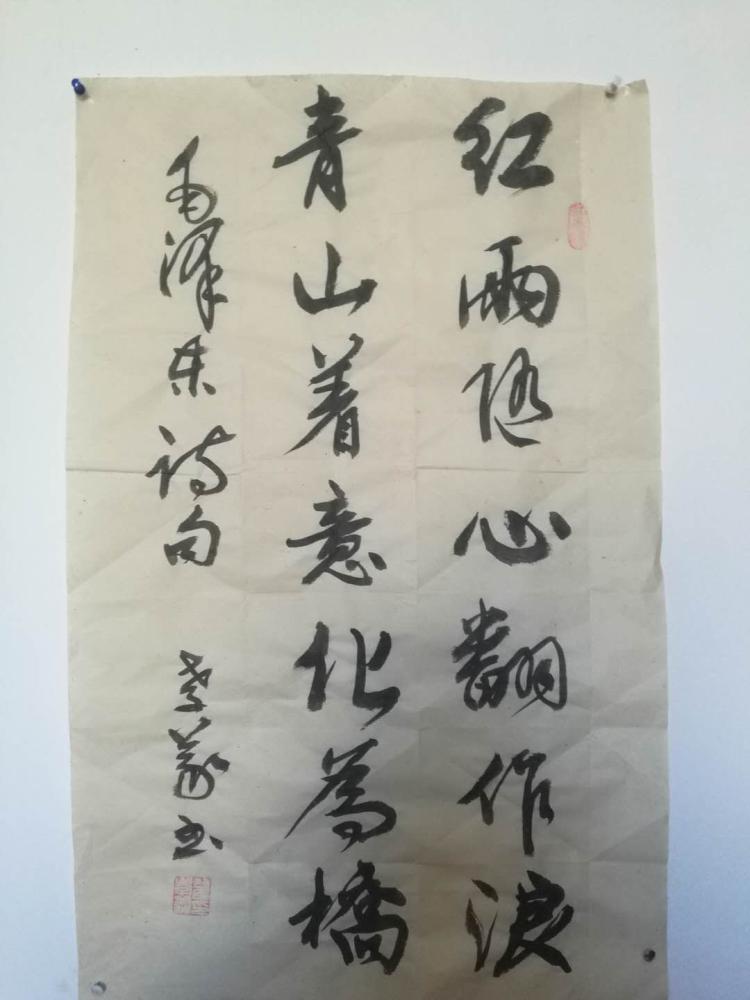 红雨随心翻作浪
青山着意化為橋
毛泽东诗句 孝義书